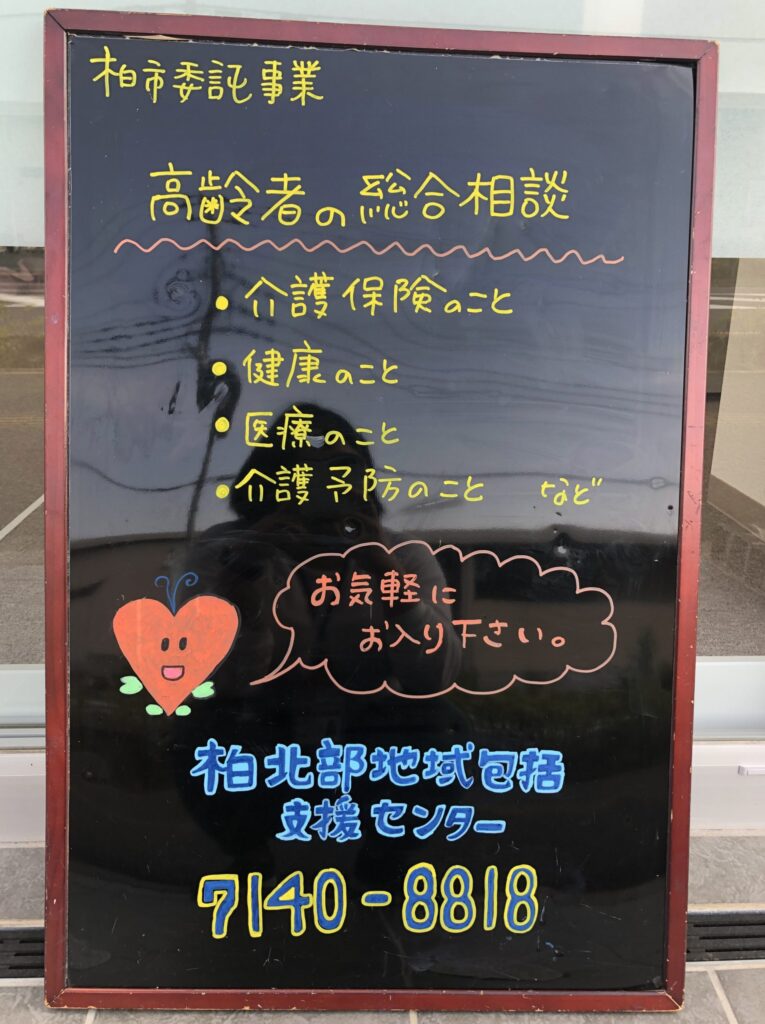 柏市委託事業
高齢者の総合相談
・介護保険のこと
・健康のこと
・医療のこと
・介護予防のこと など
お気軽に
お入り下さい。
柏北部地域包括
支援センター
7140-8818